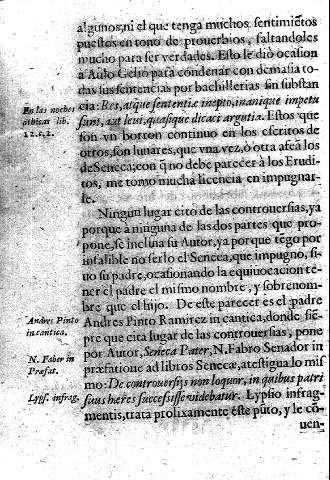 algunos, ni el que tenga muchos sentimiẽtos
puestos en tono de prouerbios, faltandoles
mucho para ser verdades. Esto le diò ocasion
a Aulo Gelio para condenar con demasia to
das sus sentencias por bachillerias sin substan
En las noches
aticas lib.
12. c. 2.
cia: Res, atque sententiæ inepto, inanique impetu
sunt, aut leui, quasique dicaci argutia. Estos que
son vn borron continuo en los escritos de
otros, son lunares, que vna vez, ò otra afeã los
de Seneca; con q̃ no debe parecer à los Erudi-
tos, me tomo mucha licencia en impugnar-
le.
Ningun lugar citò de las controuersias, ya
porque à ninguna de las dos partes que pro-
pone, se inclina su Autor, ya porque tẽgo por
infalible no serlo el Seneca, que impugno, si-
uo su padre, ocasionando la equiuocacion te-
ner el padre el mismo nombre, y sobrenom-
bre que el hijo. De este parecer es el padre
Andres Pinto
in cantica.
Andres Pinto Ramirez in cantica, donde siẽ-
pre que cita lugar de las controuersias, pone
N. Faber in
Præfat.
por Autor, Seneca Pater, N. Fabro Senador in
præfatione ad libros Senecæ, atestigua lo mis
mo: De controuersijs non loquor, in quibus patri
Lyps. infrag.
suus hæres successisse videbatur. Lypsio infrag-
mentis, trata prolixamente este pũto, y le cõ
uen-